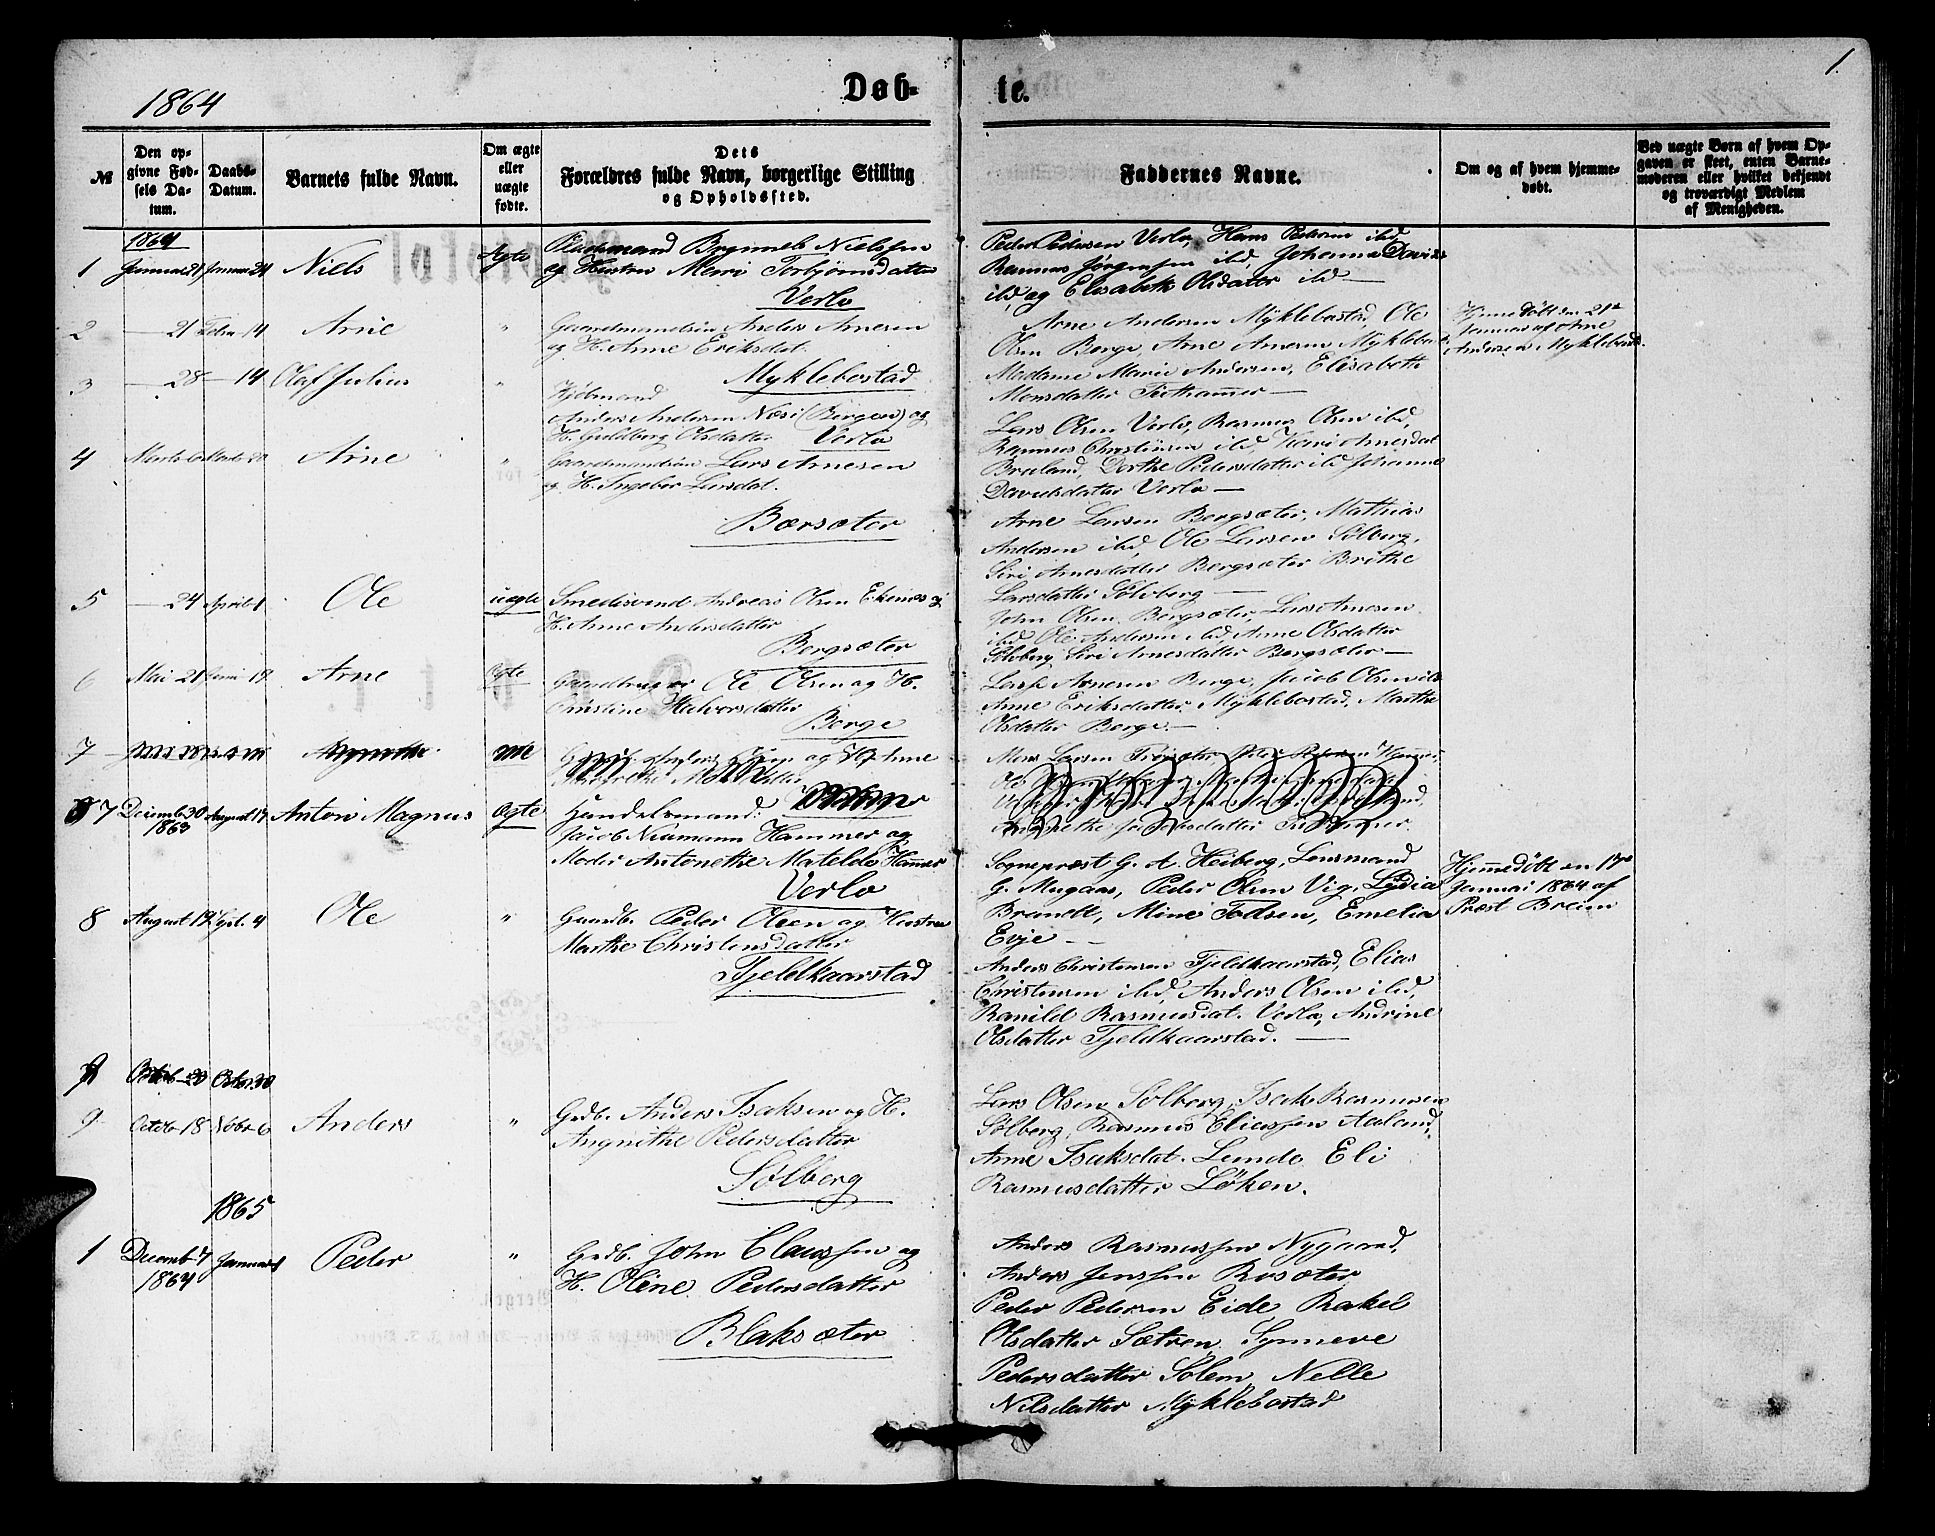 1864
Døb-
te.
1.
№
Den op-
givne Fød-
sels Da-
tum.
Daabs-
Datum.
Barnets fulde Navn.
Om ægte
eller
uægte
fødte.
Dets
Forældres fulde Navn, borgerlige Stilling
og Opholdssted.
Faddernes Navne.
Om og af hvem hjemme-
døbt.
Ved uægte Børn af hvem Op-
gaven er skeet, enten Barne-
moderen eller hvilket bekjendt
og troværdigt Medlem
af Menigheden.
1864
1 Januar 21 Januar 24 Niels Ægte
Nielssen
og Hustru Marri Torbjørnsdatter
Verlo
Peder Pedersen Verlo, Hans Pedersen ibd,
Rasmus Jørgensen ibd, Johanne Davids
ibd, og Elisabeth Olsdatter ibd —
2 — 21 Febr 14 Arne "
Gaardmandssøn Anders Arnesen
og H. Anne Eriksdat.
Myklebostad
Arne Andersen Myklebostad, Ole
Olsen Berge, Arne Arnesen Myklebost
Madame Marie Andersen, Elisabeth
Monsdatter —
Hjemmedøbt den 21de
Januar af Arne
Andersen Myklebost.
3 — 28 — 14 Olaf Julius "
Kjøbmand
Anders Andersen Næsi (Bergen) og
H. Guldborg Olsdatter Verlo
Lars Olsen Verlo, Rasmus Olsen ibd,
Rasmus Christensen ibd, Kari Arnesdat
Dorthe Pedersdatter ibd Johanne
Davidsdatter Verlo —
4 Arne "
Gaardmandssøn Lars Arnesen
og H. Ingebor Larsdat.
Bærsæter
Arne Larsen Bergsæter, Mathias
Andersen ibd, Ole Larsen Sølberg,
Siri Arnesdatter Bergsæter Brithe
Larsdatter Sølvberg —
5 — 24 April Ole uægte
Smedesvend Andreas Olsen Ekenæs og
H. Anne Andersdatter
Bergsæter
John Olsen Bergsæter, Lars Arnesen
ibd, Ole Andersen ibd, Anne Olsdatter
Sølvberg, Siri Arnesdatter Bergsæter —
6 Mai 21 Juni 19 Arne Ægte
Gaardbruger Ole Olsen og H.
Christine Halvorsdatter
Berge
Lars Arnesen Berge, Jacob Olsen ibd
Anne Eriksdatter Myklebostad, Marthe
Olsdatter Berge —
7
7 Decemb 30
1863 August 14 Anton Magnus Ægte
Handelsmand:
Jacob Neumann Hammer og
Moder Antonethe Matelde Hammer
Verlo
Sognepræst G. A. Heiberg, Lensmand
G. Mugaas, Peder Olsen Vig, Lydia
Brandt, Mine Todsen, Emelia
Evje —
Hjemmedøbt den 17de
Januar 1864 af
Præst Breim
8 August 19 Sept. 4 Ole "
Gaardb. Peder Olsen og Hustru
Marthe Christensdatter
Fjeldkaarstad
Anders Christensen Fjeldkaarstad, Elias
Christensen ibd, Anders Olsen ibd,
Ranild Rasmusdat. Verlo, Andrine
Olsdatter Fjeldkaarstad. —
9 Octob 18 Növbr 6 Anders "
Grdb. Anders Isaksen og H.
Angnethe Pedersdatter
Sølberg
Lars Olsen Sølberg, Isak Rasmussen
Sølberg, Rasmus Eliassen Aaland,
Anne Isaksdat. Lunde Eli
Rasmusdatter Løken.
1865
1 Decemb 7
1864 Januar 1 Peder "
Grdb. John Claussen og
H. Oline Pedersdatter
Blaksæter
Anders Rasmussen Nygaard,
Anders Jenssen Rosæter
Peder Pedersen Eide Rakel
Olsdatter Sætren, Synneve
Pedersdatter Solem, Nelle
Nilsdatter Myklebostad